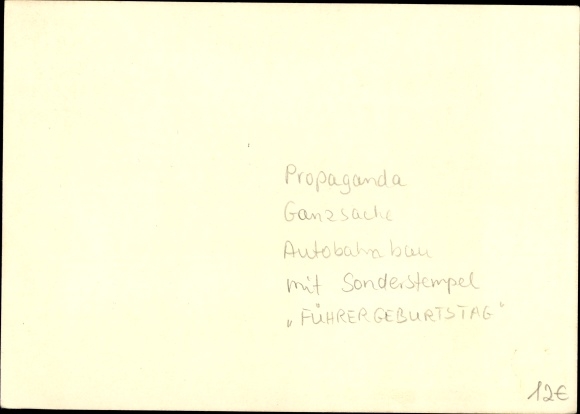 Propaganda
Ganzsache
Autobahnbau
mit Sonderstempel
„FÜHRERGEBURTSTAG“
12€